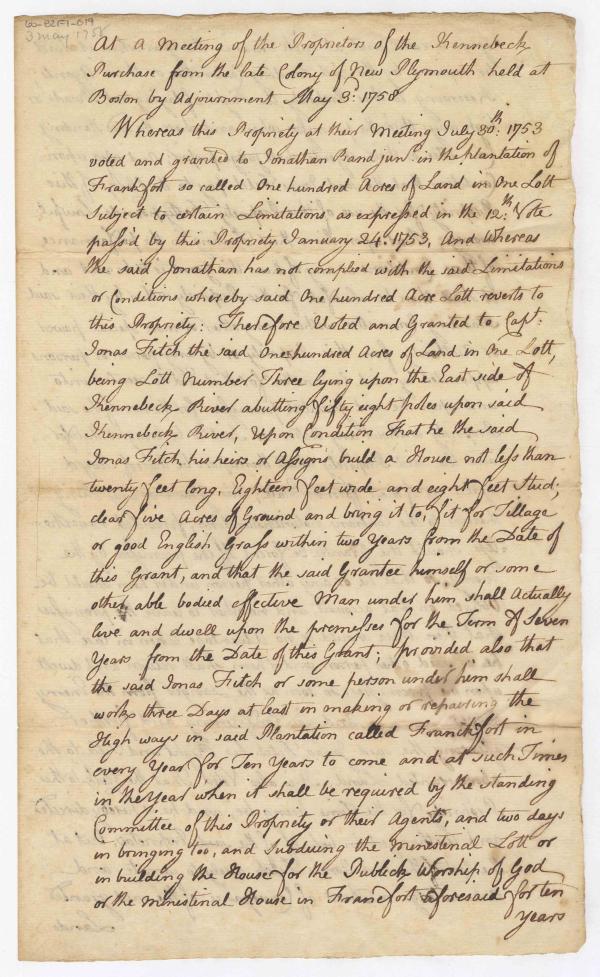 60-82F1-019
3 May 1758
At a Meeting of the Proprietors of the Kennebeck
Purchase from the late Colony of New Plymouth held at
Boston by Adjournment May 3d. 1758
Whereas this Propriety at their Meeting July 30th. 1753
voted and granted to Jonathan Rand junr. in the plantation of
Frankfort so called One hundred Acres of Land in One Lott
Subject to certain Limitations as expressed in the 12th. Vote
pass'd by this Propriety January 24. 1753, And Whereas
the said Jonathan has not complied with the said Limitations
or Conditions whereby said One hundred Acre Lott reverts to
this Propriety: Therefore Voted and Granted to Capt.
Jonas Fitch the said One hundred Acres of Land in One Lott,
being Lott Number Three lying upon the East side of
Kennebeck River abutting fifty eight poles upon said
Kennebeck River, Upon Condition That he the said
Jonas Fitch his heirs or Assigns build a House not less than
twenty feet long, Eighteen feet wide and eight feet Stud;
clear five Acres of Ground and bring it to, fit for Tillage
or good English Grass within two Years from the Date of
this Grant, and that the said Grantee himself or some
other able bodied effective Man under him shall Actually
live and dwell upon the premisses for the Term of Seven
Years from the Date of this Grant; provided also that
the said Jonas Fitch or some person under him shall
work three Days at least in making or repairing the
High ways in said Plantation called Franckfort in
every Year for Ten Years to come and at such Times
in the Year when it shall be required by the standing
Committee of this Propriety or their Agents, and two days
in bringing too, and Subduing the Ministerial Lott or
in building the House for the Publick Worship of God
or the Ministerial House in Francfort aforesaid for ten
Years